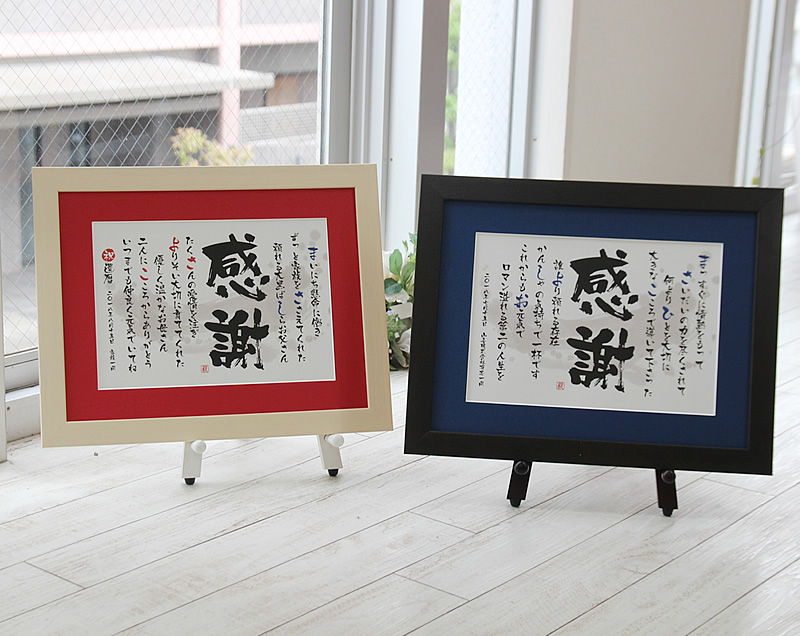 まいにち懸命に働き
ずっと家族をささえてくれた
頼れる大黒ばしらお父さん
感謝
たくさんの愛情を注ぎ
よりそい大切に育ててくれた
優しく温かなお母さん
二人にこころからありがとう
いつまでも仲良く元気でいてね
祝 還暦
まっすぐな情熱をもって
さいだいの力を尽くされて
何よりひとを大切に
大きなこころで導いて下さった
感謝
誰より頼れる存在
かんしゃの気持ちで一杯です
これからもお元気で
ロマン溢れる第二の人生を